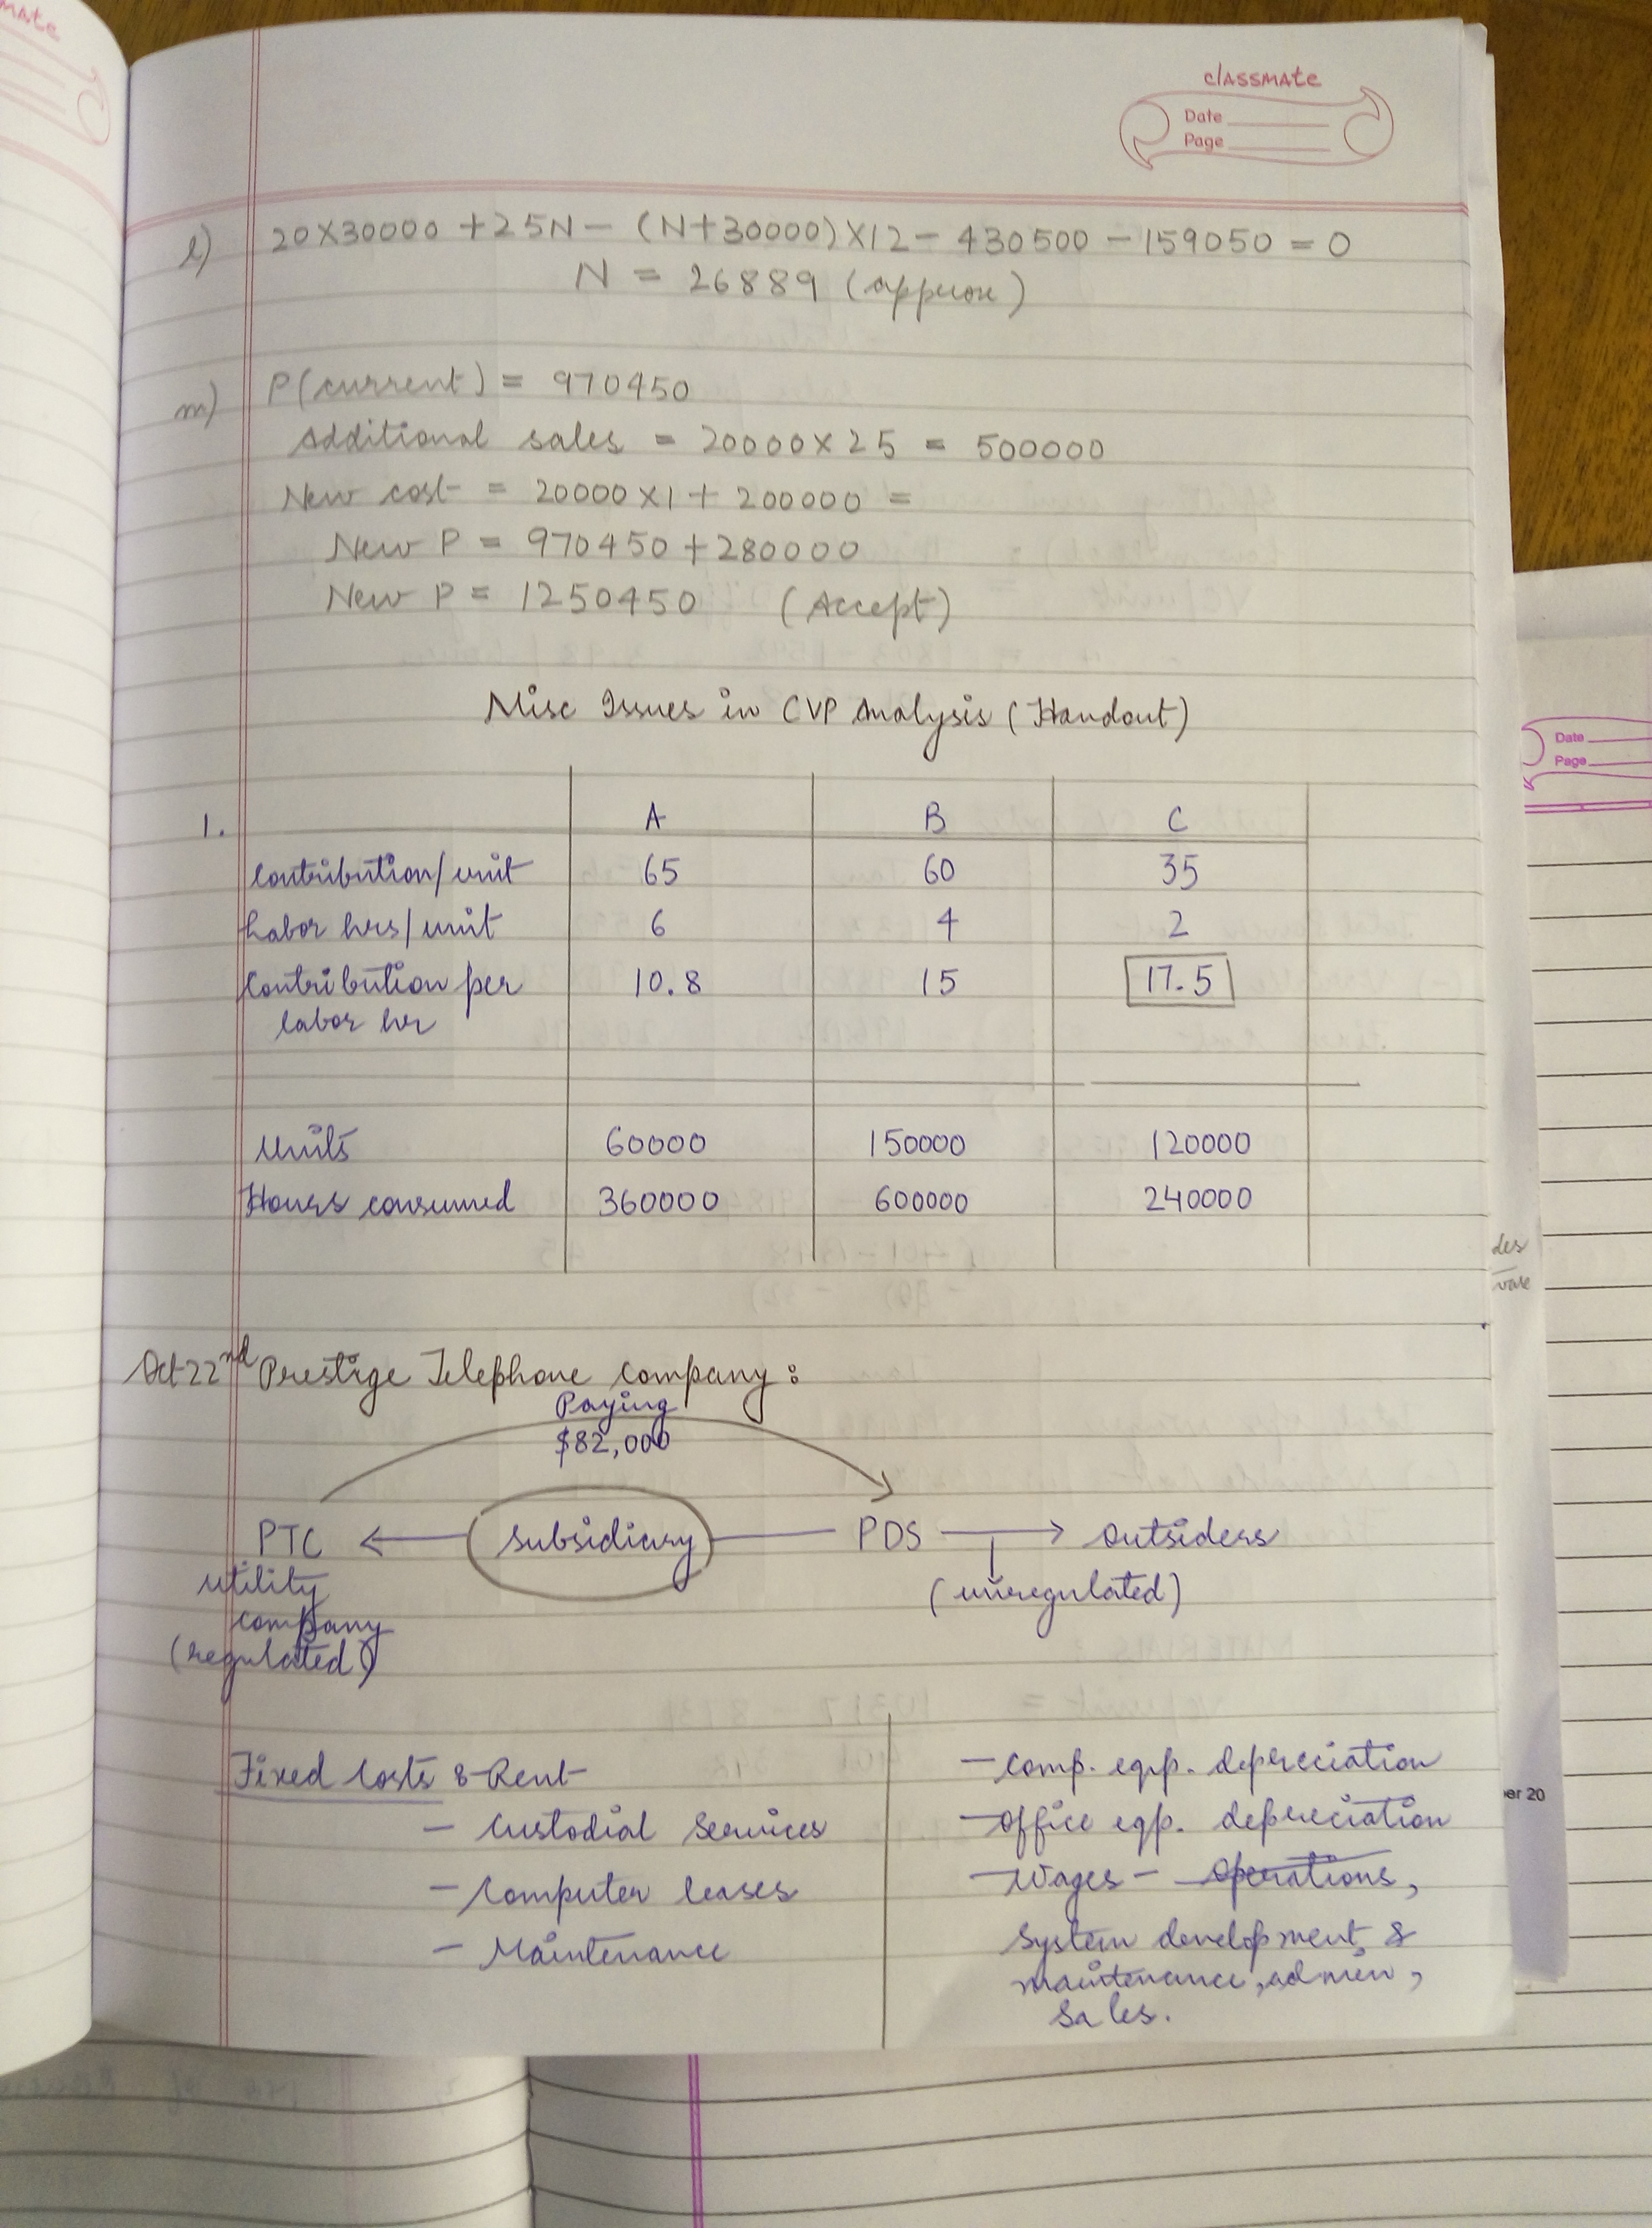 mate
classmate
Date
Page
l) 20×30000 + 25N - (N+30000)×12 - 430500 - 159050 = 0
N = 26889 (approx)
m) P(current) = 970450
Additional sales = 20000×25 = 500000
New cost = 20000×1 + 200000 =
New P = 970450 + 280000
New P = 1250450 (Accept)
Misc Issues in CVP Analysis (Handout)
1. A B C
Contribution/unit 65 60 35
Labor hrs/unit 6 4 2
Contribution per 10.8 15 17.5
labor hr
Units 60000 150000 120000
Hours consumed 360000 600000 240000
Oct 22nd Prestige Telephone Company:
Paying
$82,000
PTC subsidiary PDS Outsiders
utility (unregulated)
company
(regulated)
Fixed Costs :- Rent
- Custodial services
- Computer leases
- Maintenance
- Comp. eqp. depreciation
- Office eqp. depreciation
- Wages - Operations,
System development &
maintenance, admin,
Sales.
Date
Page
des
er 20